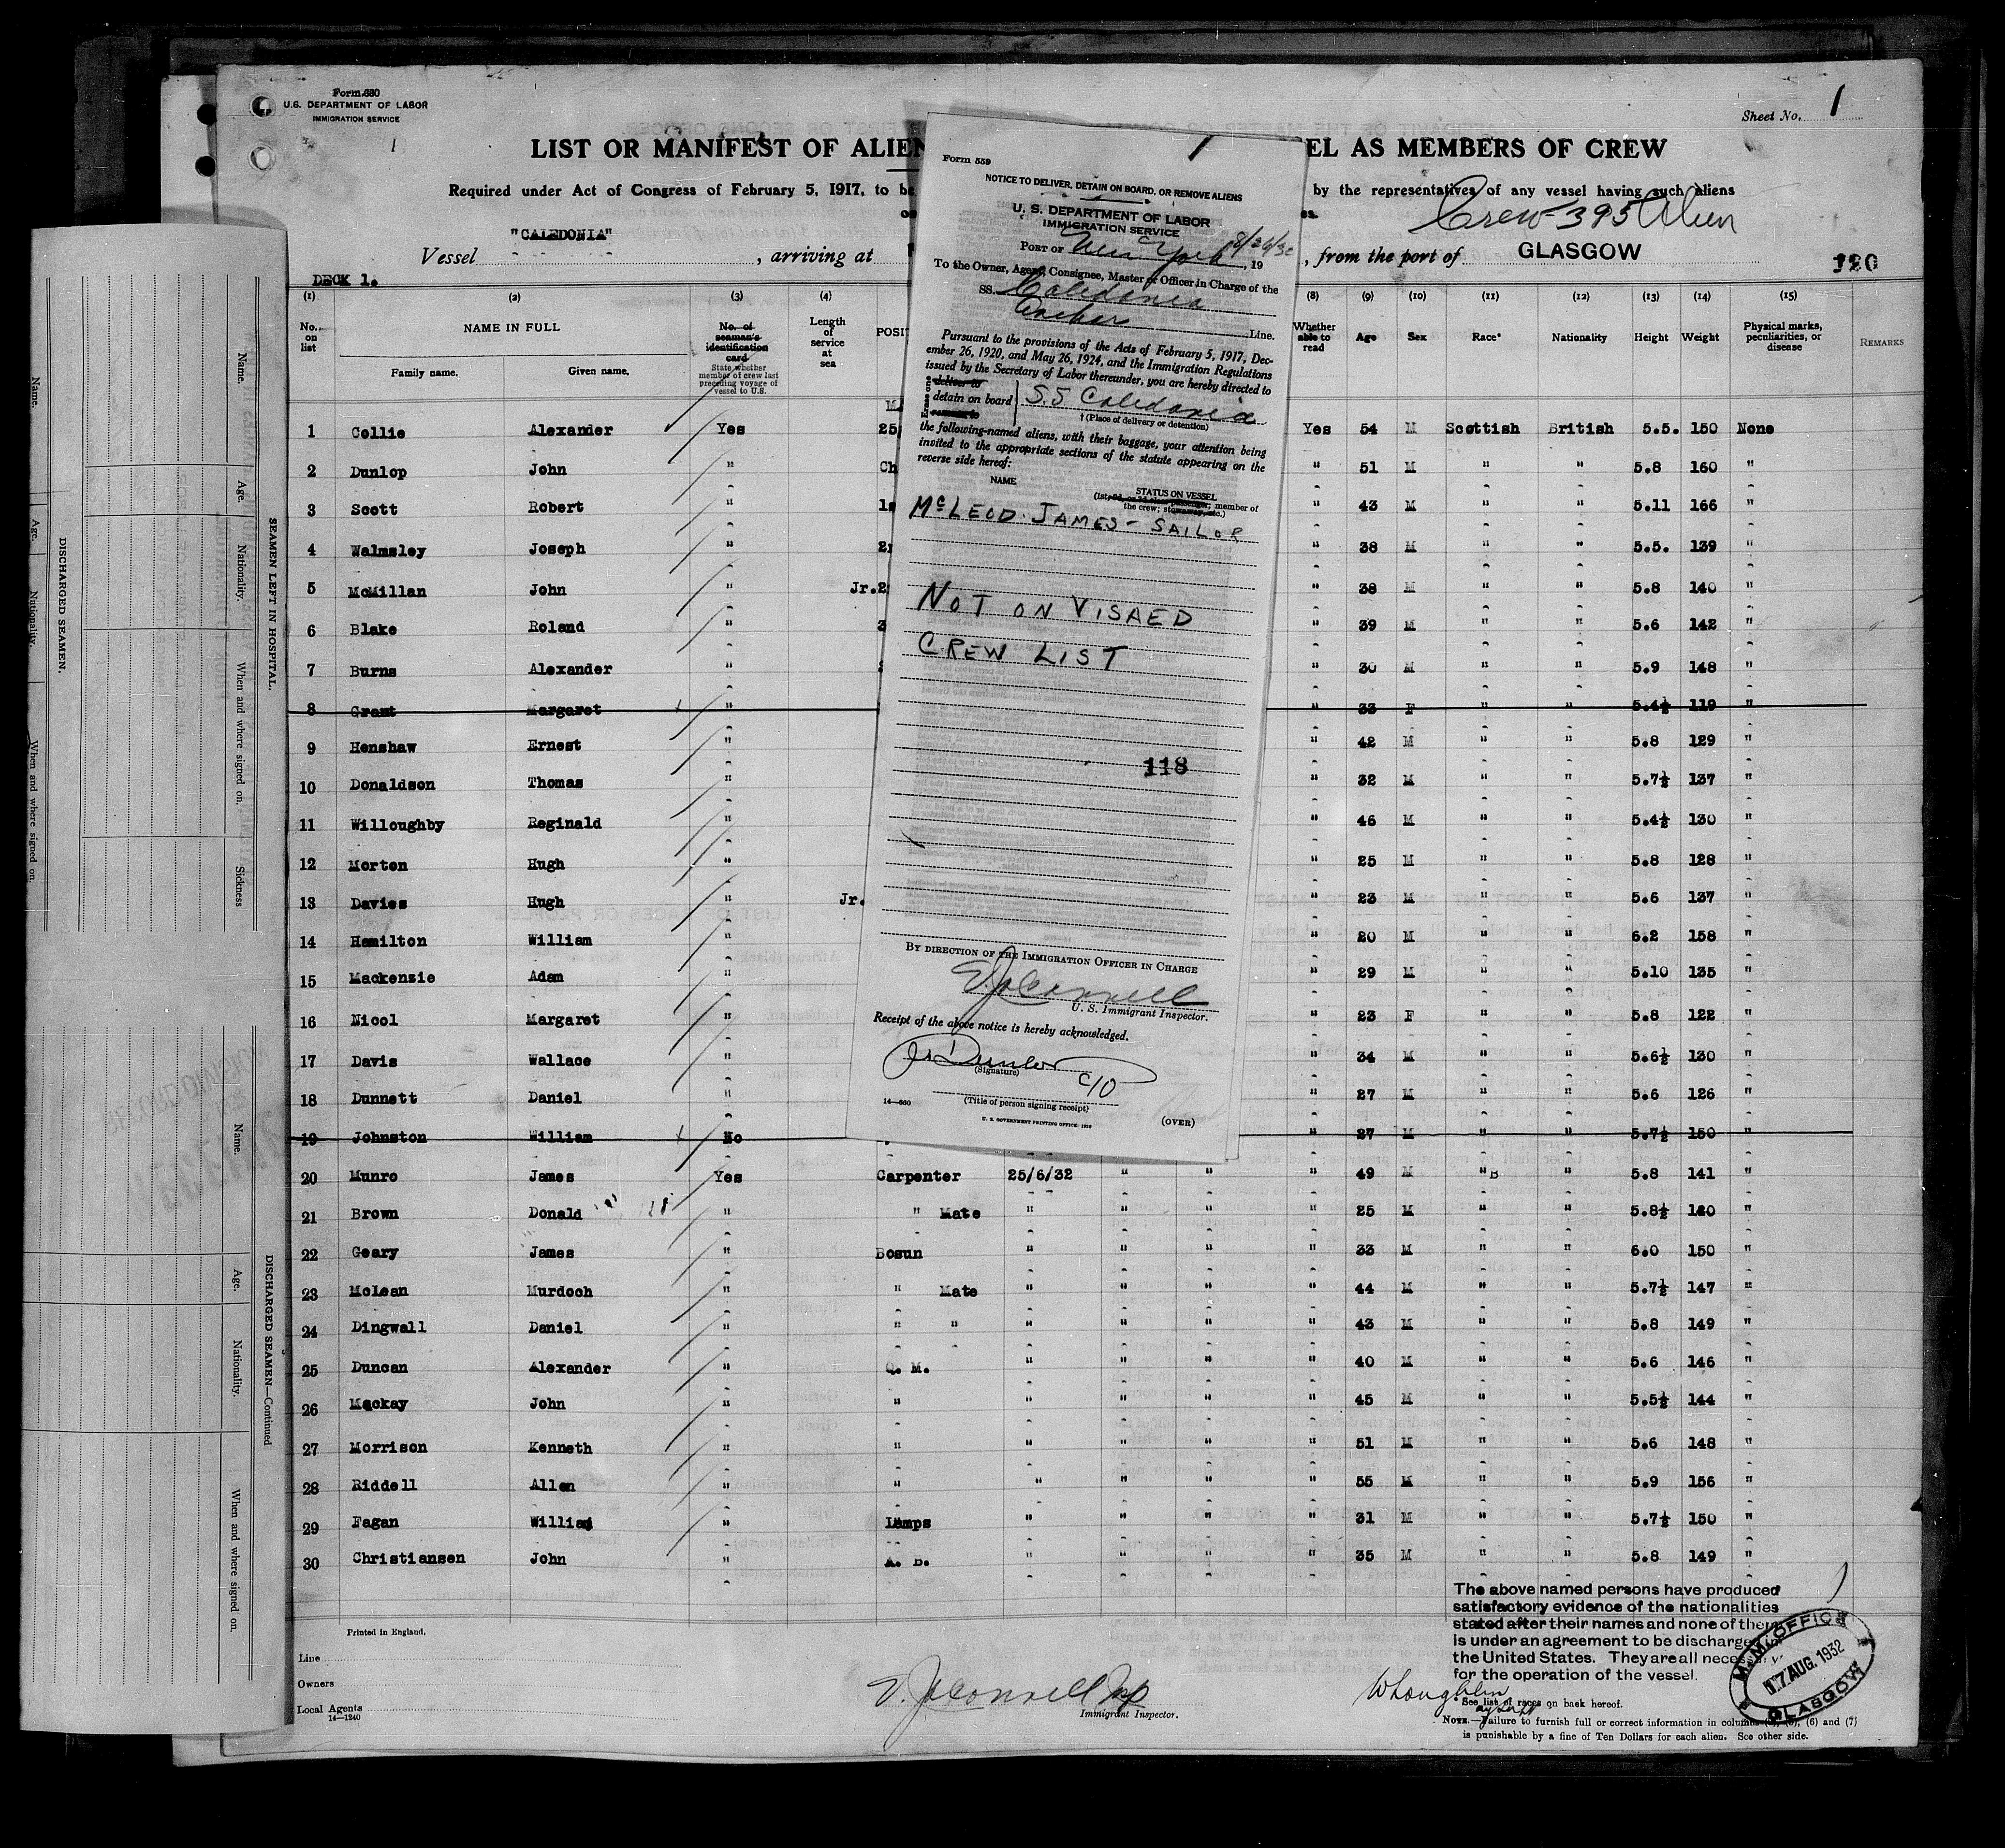 Form 680
U.S. DEPARTMENT OF LABOR
IMMIGRATION SERVICE
Sheet No. 1
1
LIST OR MANIFEST OF ALIEN
EL AS MEMBERS OF CREW
Required under Act of Congress of February 5, 1917, to be
by the representatives of any vessel having such aliens
Crew 395 Alien
Vessel "CALEDONIA", arriving at
, from the port of GLASGOW
120
DECK 1.
(1) (2) (3) (4) (8) (9) (10) (11) (12) (13) (14) (15)
No. on list
NAME IN FULL
Family name. Given name.
No. of seaman's identification card
State whether member of crew last preceding voyage of vessel to U.S.
Length of service at sea
POSIT
Whether able to read
Age Sex Race* Nationality Height Weight
Physical marks, peculiarities, or disease
REMARKS
1 Collie Alexander Yes 25 Yes 54 M Scottish British 5.5. 150 None
2 Dunlop John " Ch " 51 M " " 5.8 160 "
3 Scott Robert " 1s " 43 M " " 5.11 166 "
4 Walmsley Joseph " " 38 M " " 5.5. 139 "
5 McMillan John " Jr.2 " 38 M " " 5.8 140 "
6 Blake Roland " 3 " 39 M " " 5.6 142 "
7 Burns Alexander " " 30 M " " 5.9 148 "
8 Grant Margaret " " 33 F " " 5.4½ 119 "
9 Henshaw Ernest " " 42 M " " 5.8 129 "
10 Donaldson Thomas " " 32 M " " 5.7½ 137 "
11 Willoughby Reginald " " 46 M " " 5.4½ 130 "
12 Morton Hugh " " 25 M " " 5.8 128 "
13 Davies Hugh " Jr. " 23 M " " 5.6 137 "
14 Hamilton William " " 20 M " " 6.2 158 "
15 Mackenzie Adam " " 29 M " " 5.10 135 "
16 Nicol Margaret " " 23 F " " 5.8 122 "
17 Davis Wallace " " 34 M " " 5.6½ 130 "
18 Dunnett Daniel " " 27 M " " 5.6 126 "
19 Johnston William No " 27 M " " 5.7½ 150 "
20 Munro James Yes Carpenter 25/6/32 " " " 49 M " B " 5.8 141 "
21 Brown Donald " " Mate " " " " 25 M " " 5.8½ "
22 Geary James " Bosun " " " " 33 M " " 6.0 150 "
23 McLean Murdoch " " Mate " " " " 44 M " " 5.7½ 147 "
24 Dingwall Daniel " " " " " " " 43 M " " 5.8 149 "
25 Duncan Alexander " Q. M. " " " " 40 M " " 5.6 146 "
26 Mackay John " " " " " " 45 M " " 5.5½ 144 "
27 Morrison Kenneth " " " " " " 51 M " " 5.6 148 "
28 Riddell Allan " " " " " " 55 M " " 5.9 156 "
29 Fagan William " Lamps " " " " 31 M " " 5.7½ 150 "
30 Christiansen John " A. B. " " " " 35 M " " 5.8 149 "
Printed in England.
Line
Owners
Local Agents
14—1240
Immigrant Inspector.
The above named persons have produced
satisfactory evidence of the nationalities
stated after their names and none of them
is under an agreement to be discharged
the United States. They are all necessary
for the operation of the vessel.
M.M. OFFICE
17 AUG. 1932
GLASGOW
* See list of races on back hereof.
NOTE.—Failure to furnish full or correct information in columns (6) and (7)
is punishable by a fine of Ten Dollars for each alien. See other side.
1
Form 559
NOTICE TO DELIVER, DETAIN ON BOARD, OR REMOVE ALIENS
U. S. DEPARTMENT OF LABOR
IMMIGRATION SERVICE
PORT OF New York 8/26/32, 19
To the Owner, Agent, Consignee, Master or Officer in Charge of the
SS. Caledonia
Anchor Line.
Pursuant to the provisions of the Acts of February 5, 1917, Dec-
ember 26, 1920, and May 26, 1924, and the Immigration Regulations
issued by the Secretary of Labor thereunder, you are hereby directed to
Erase one
deliver to
detain on board S.S Caledonia
remove to
† (Place of delivery or detention)
the following-named aliens, with their baggage, your attention being
invited to the appropriate sections of the statute appearing on the
reverse side hereof:
NAME
STATUS ON VESSEL
(1st, 2d, or 3d class passenger; member of
the crew; stowaway, etc.)
McLEOD. JAMES - SAILOR
NOT ON VISAED
CREW LIST
118
BY DIRECTION OF THE IMMIGRATION OFFICER IN CHARGE
U. S. Immigrant Inspector.
Receipt of the above notice is hereby acknowledged.
Jn Dunlop
(Signature)
C/O
(Title of person signing receipt)
14—660
U. S. GOVERNMENT PRINTING OFFICE
(OVER)
SEAMEN LEFT IN HOSPITAL.
Name. Age. Nationality. When and where signed on. Sickness
DISCHARGED SEAMEN.
Name. Age. Nationality. When and where signed on.
DISCHARGED SEAMEN—Continued
Name. Age. Nationality. When and where signed on.